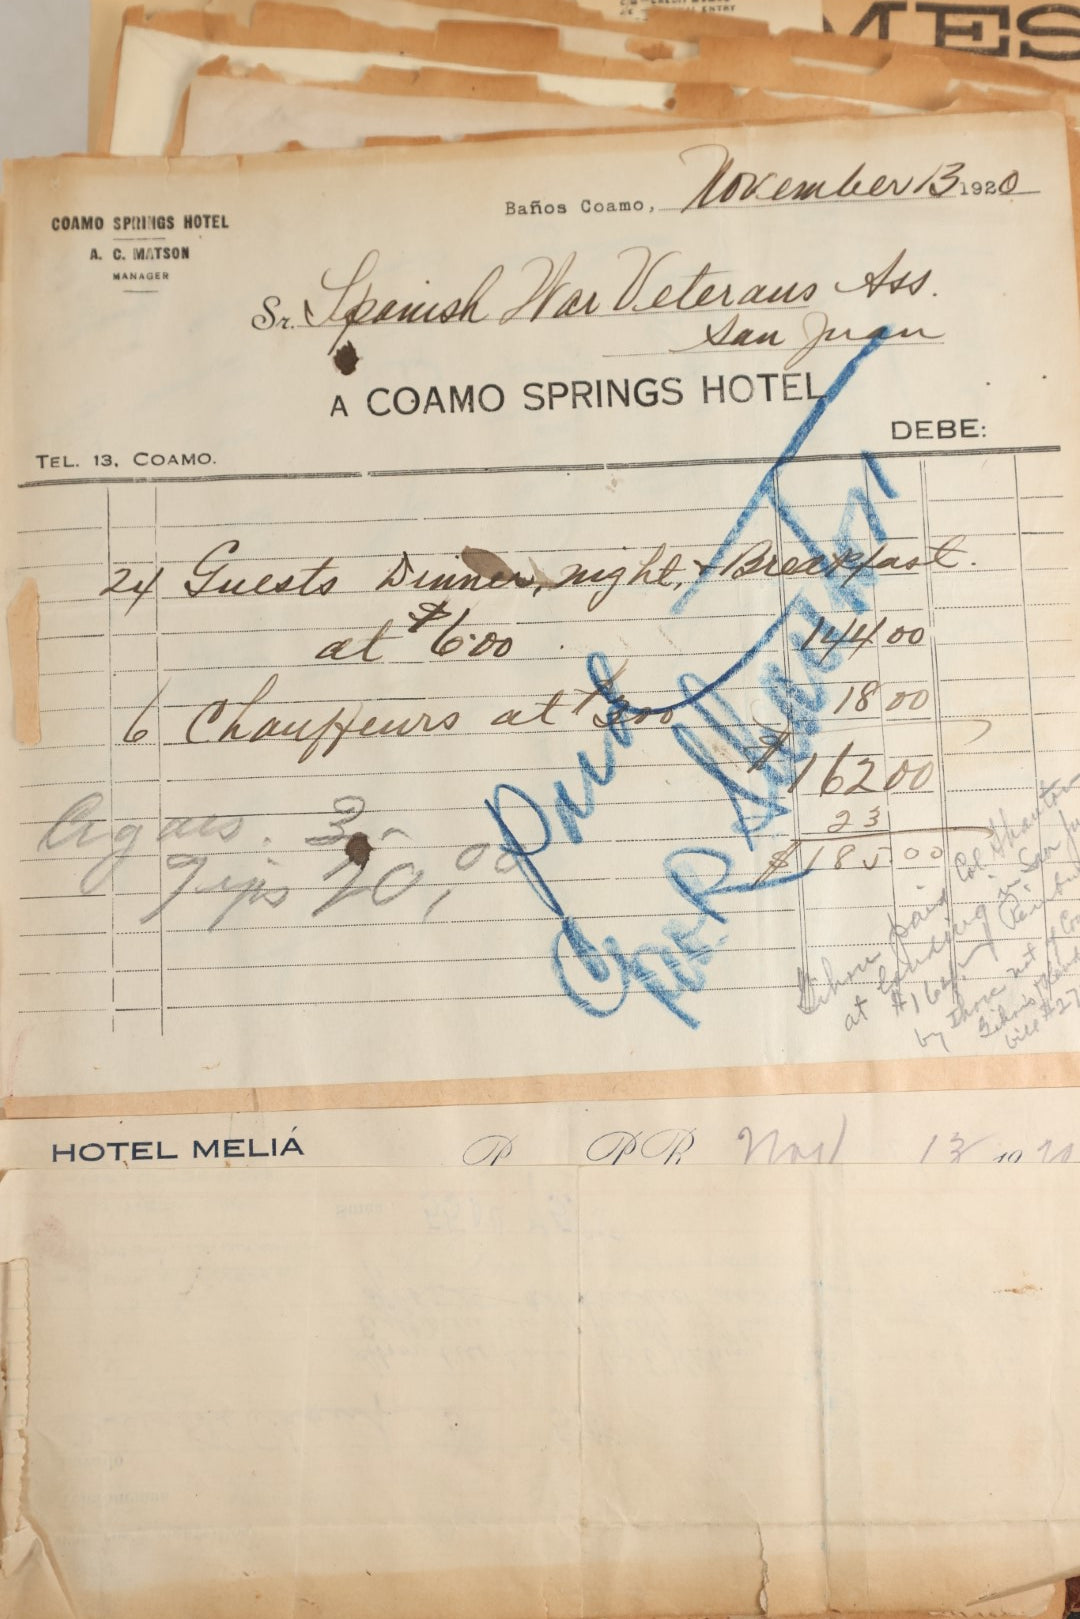 ENTRY
MES
COAMO SPRINGS HOTEL
A. C. MATSON
MANAGER
Baños Coamo, November 13 1920
Sr. Spanish War Veterans Ass.
San Juan
A COAMO SPRINGS HOTEL
DEBE:
TEL. 13, COAMO.
24 Guests Dinner, night, + Breakfast.
at $6.00 144 00
6 Chauffeurs at $3.00 18 00
$162 00
23
$185 00
Cigars. 3.-
Tips 20,00
Paid
paid Col. Shanton
at landing in San Ju
$162
by those not of Co
bill $27
HOTEL MELIÁ
P PR Nov 13 19 20